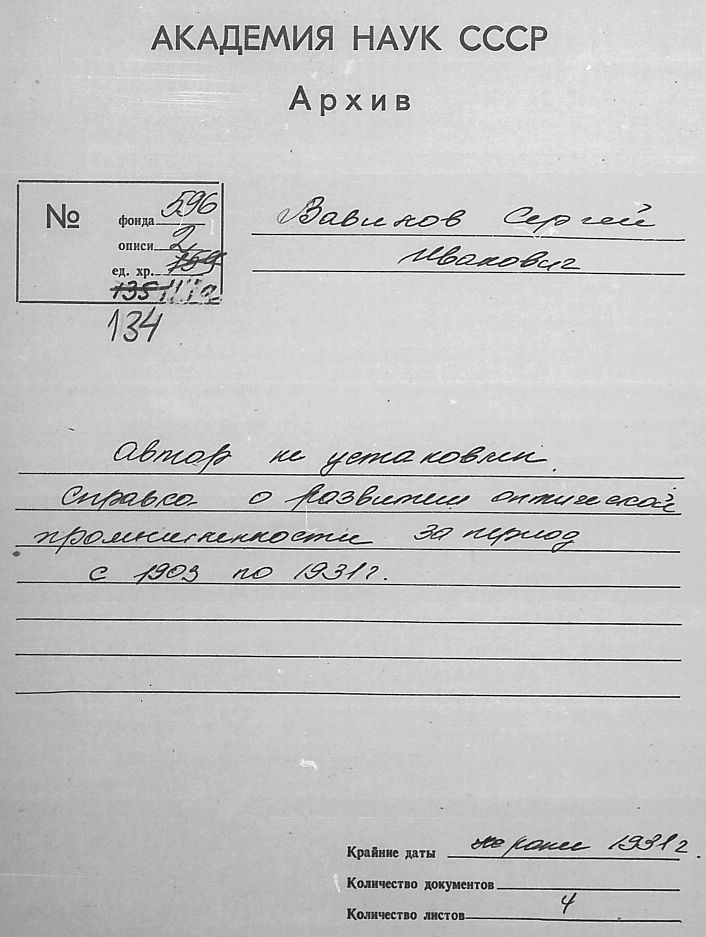 АКАДЕМИЯ НАУК СССР
Архив
№
фонда 596
описи 2
ед. хр. 159
135
134
Вавилов Сергей
Иванович
Автор не установлен.
Справка о развитии оптической
промышленности за период
с 1903 по 1931 г.
Крайние даты не ранее 1931 г.
Количество документов
Количество листов 4